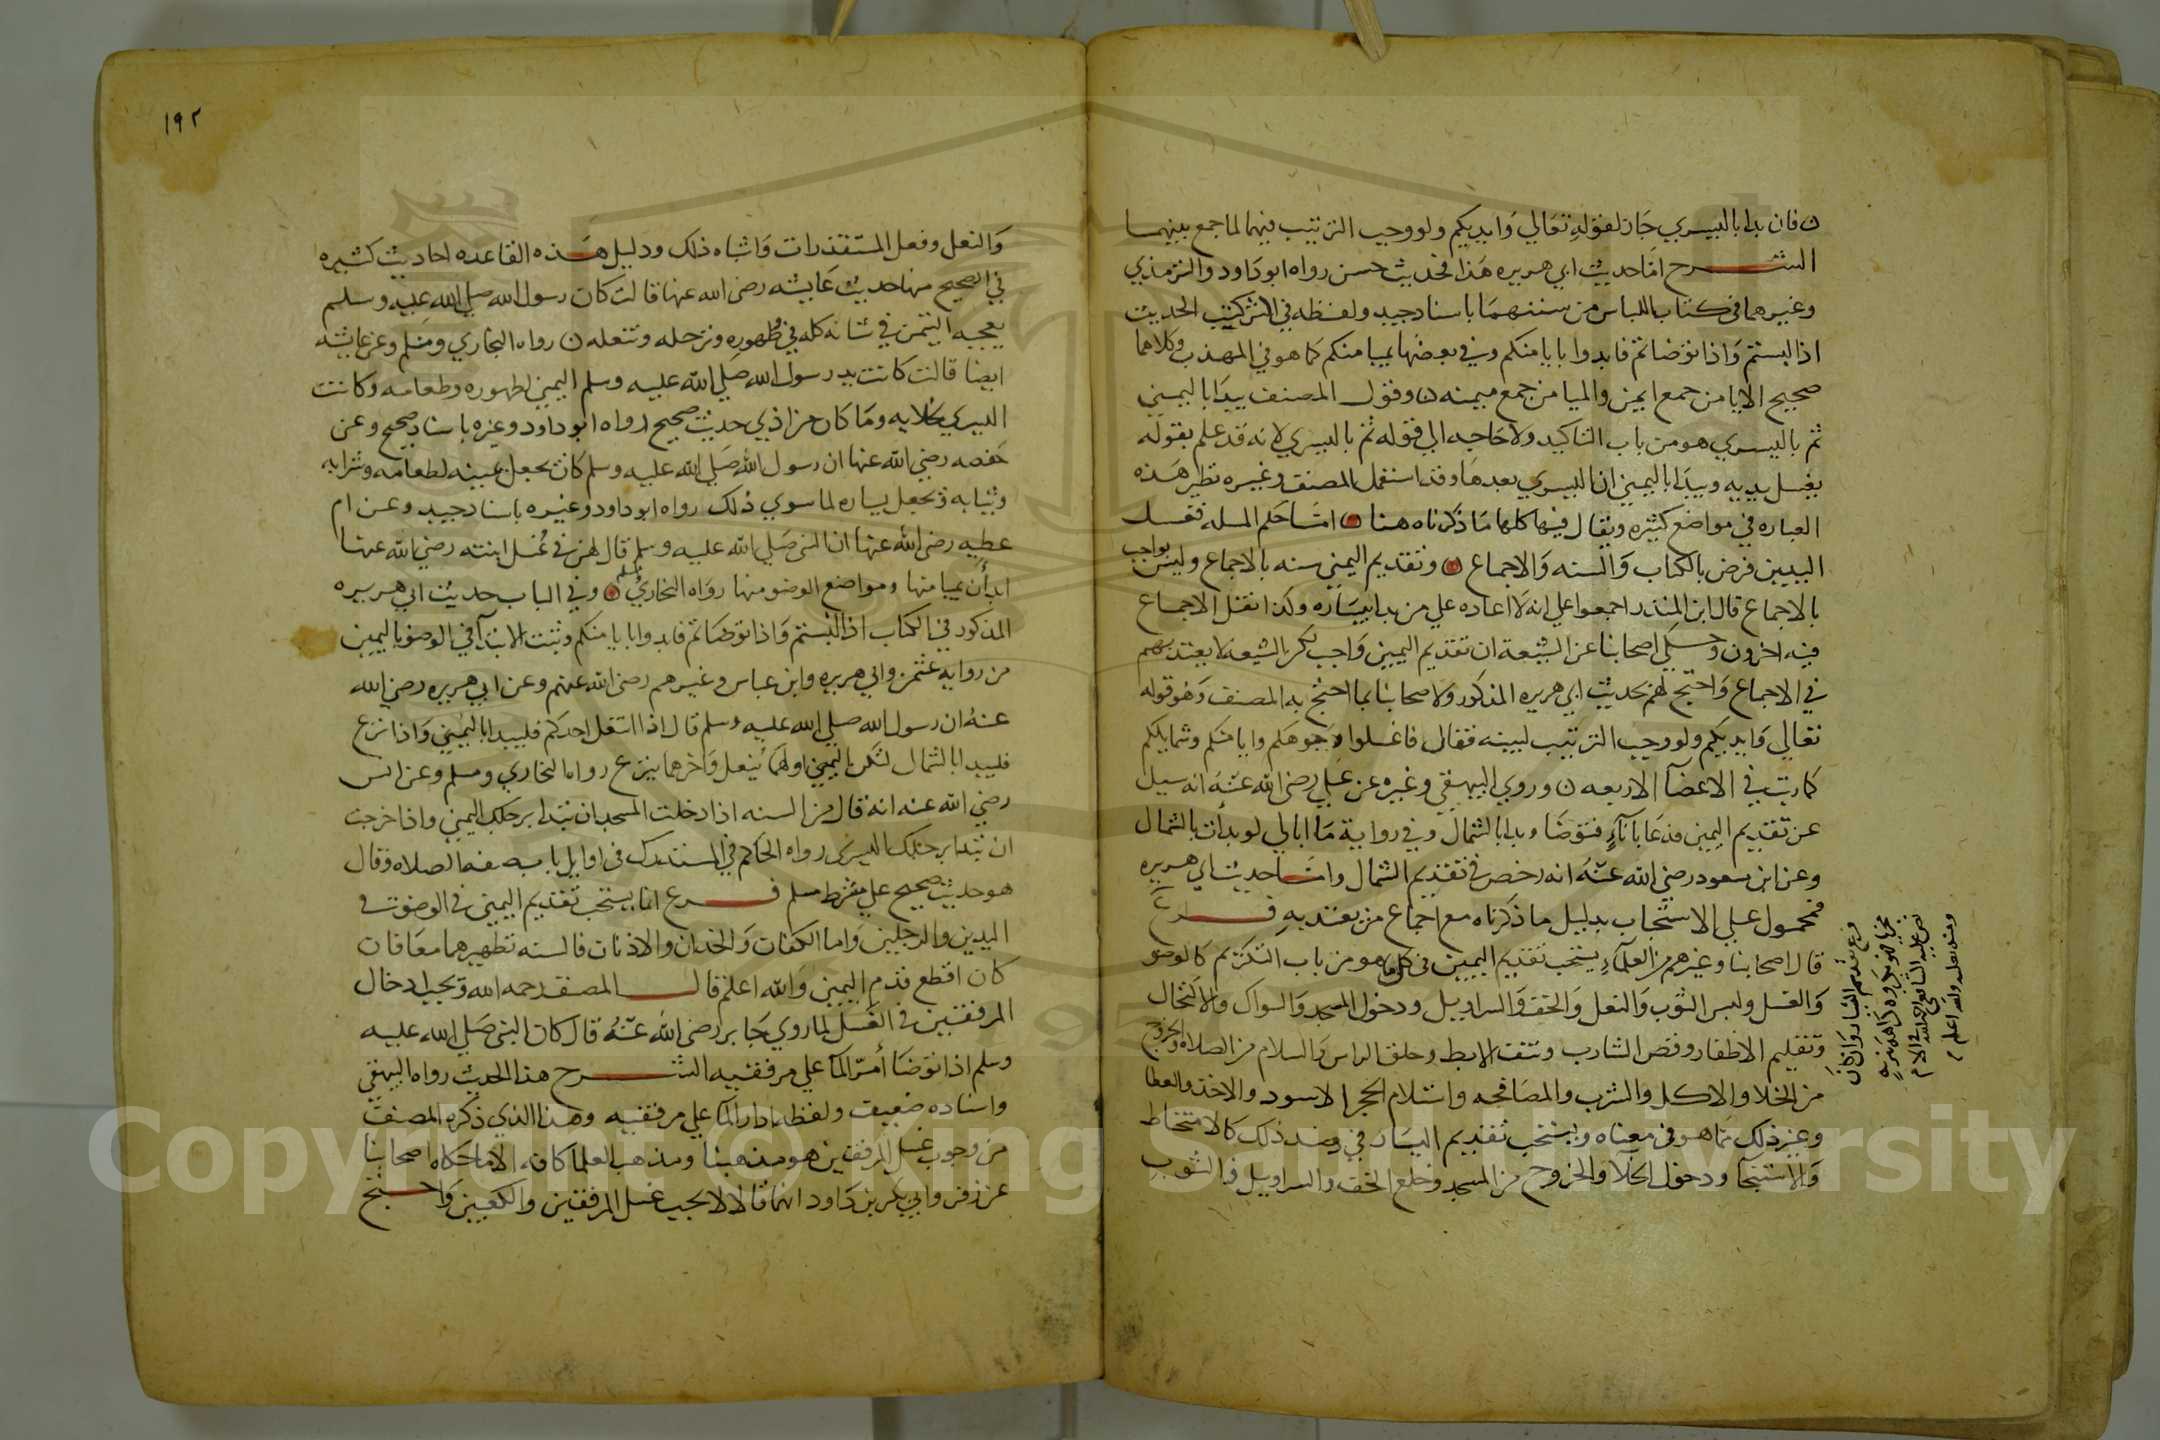 ن فان بدا باليسري جاز لقوله تعالي وايديكم ولو وجب الترتيب فيهما لما جمع بينهما
الشرح اما حديث ابي هريره هذا فحديث حسن رواه ابو داود والترمذي
وغيرهما في كتاب اللباس من سننهما باسناد جيد ولفظه في اكثر كتب الحديث
اذا لبستم واذا توضاتم فابدوا بايامنكم وفي بعضها بميامنكم كما هو في المهذب وكلاهما
صحيح الايامن جمع ايمن والميامن جمع ميمنه ن وقول المصنف يبدا باليمني
ثم باليسري هو من باب التاكيد ولا حاجه الي قوله ثم باليسري لانه قد علم بقوله
يغسل يديه ويبدا باليمني ان اليسري بعدها وقد استعمل المصنف وغيره نظير هذه
العباره في مواضع كثيره ويقال فيها كلها ما ذكرناه هنا اما حكم المسله فغسل
اليدين فرض بالكتاب والسنه والاجماع وتقديم اليمني سنه بالاجماع وليس بواجب
بالاجماع قال ابن المنذر اجمعوا علي انه لا اعاده علي من بدا بيساره وكذا نقل الاجماع
فيه اخرون وحكي اصحابنا عن الشيعة ان تقديم اليمين واجب لكن الشيعه لا يعتد بهم
في الاجماع واحتج لهم بحديث ابي هريره المذكور ولاصحابنا بما احتج به المصنف وهو قوله
تعالي وايديكم ولو وجب الترتيب لبينه فقال فاغسلوا وجوهكم وايامنكم وشمايلكم
كما رتب في الاعضا الاربعه ن وروي البيهقي وغيره عن علي رضي الله عنه انه سيل
عن تقديم اليمين فدعا باناء فتوضا وبدا بالشمال وفي رواية ما ابالي لو بدات بالشمال
وعن ابن مسعود رضي الله عنه انه رخص في تقديم الشمال واما حديث ابي هريره
فمحمول علي الاستحباب بدليل ما ذكرناه مع اجماع من يعتد به فرع
قال اصحابنا وغيرهم من العلماء يستحب تقديم اليمين في كل ما هو من باب التكريم كالوضو
والغسل ولبس الثوب والنعل والخف والسراويل ودخول المسجد والسواك والاكتحال
وتقليم الاظفار وقص الشارب ونتف الابط وحلق الراس والسلام من الصلاه والخروج
من الخلا والاكل والشرب والمصافحه واستلام الحجر الاسود والاخذ والعطا
وغير ذلك مما هو في معناه ويستحب تقديم اليسار في ضد ذلك كالامتخاط
والاستنجا ودخول الخلا والخروج من المسجد وخلع الخف والسراويل والثوب
١٩٢
والنعل وفعل المستقذرات واشباه ذلك ودليل هذه القاعده احاديث كثيره
في الصحيح منها حديث عايشه رضي الله عنها قالت كان رسول الله صلي الله عليه وسلم
يعجبه التيمن في شانه كله في طهوره وترجله وتنعله ن رواه البخاري ومسلم وعن عايشه
ايضا قالت كانت يد رسول الله صلي الله عليه وسلم اليمني لطهوره وطعامه وكانت
اليسري لخلايه وما كان من اذي حديث صحيح رواه ابو داود وغيره باسناد صحيح وعن
حفصه رضي الله عنها ان رسول الله صلي الله عليه وسلم كان يجعل يمينه لطعامه وشرابه
وثيابه ويجعل يساره لما سوي ذلك رواه ابو داود وغيره باسناد جيد وعن ام
عطيه رضي الله عنها ان النبي صلي الله عليه وسلم قال لهن في غسل ابنته رضي الله عنها
ابدأن بميامنها ومواضع الوضو منها رواه البخاري ومسلم وفي الباب حديث ابي هريره
المذكور في الكتاب اذا لبستم واذا توضاتم فابدوا بايامنكم وثبت الابتدآ في الوضو باليمين
من روايه عثمن وابي هريره وابن عباس وغيرهم رضي الله عنهم وعن ابي هريره رضي الله
عنه ان رسول الله صلي الله عليه وسلم قال اذا انتعل احدكم فليبدا باليمني واذا نزع
فليبدا بالشمال لتكن اليمني اولهما تنعل واخرهما ينزع رواه البخاري ومسلم وعن انس
رضي الله عنه انه قال من السنه اذا دخلت المسجد ان تبدا برجلك اليمني واذا خرجت
ان تبدا برجلك اليسري رواه الحاكم في المستدرك في اوايل باب صفه الصلاه وقال
هو حديث صحيح علي شرط مسلم فرع انما يستحب تقديم اليمني في الوضو في
اليدين والرجلين واما الكفان والخدان والاذنان فالسنه تطهيرهما معا فان
كان اقطع قدم اليمين والله اعلم قال المصنف رحمه الله ويجب ادخال
المرفقين في الغسل لما روي جابر رضي الله عنه قال كان النبي صلي الله عليه
وسلم اذا توضا أمر الما علي مرفقيه الشرح هذا الحديث رواه البيهقي
واسناده ضعيف ولفظه ادار الما علي مرفقيه وهذا الذي ذكره المصنف
من وجوب غسل المرفقين هو مذهبنا ومذهب العلما كافه الا ما حكاه اصحابنا
عن زفر وابي بكر بن داود انهما قالا لا يجب غسل المرفقين والكعبين واحتج
Copyright © King Saud University